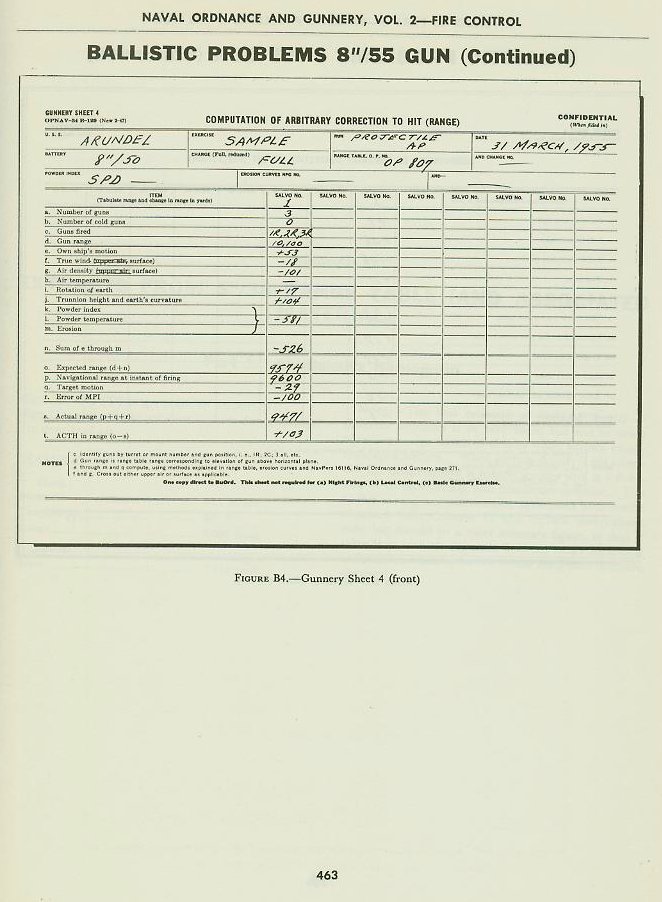 NAVAL ORDNANCE AND GUNNERY, VOL. 2—FIRE CONTROL
BALLISTIC PROBLEMS 8"/55 GUN (Continued)
GUNNERY SHEET 4
OPNAV-84 B-129 (New 2-47)
COMPUTATION OF ARBITRARY CORRECTION TO HIT (RANGE)
CONFIDENTIAL
(When filled in)
U. S. S. ARUNDEL
EXERCISE SAMPLE
RUN PROJECTILE AP
DATE 31 MARCH, 1955
BATTERY 8"/50
CHANGE (Full, reduced) FULL
RANGE TABLE, O. P. No. OP 807
AND CHANGE NO. —
POWDER INDEX SPD —
EROSION CURVES NPG NO. —
AND— —
ITEM (Tabulate range and change in range in yards) SALVO No. 1 SALVO No. SALVO No. SALVO No. SALVO No. SALVO No. SALVO No. SALVO No.
a. Number of guns 3
b. Number of cold guns 0
c. Guns fired 1R,2R,3R
d. Gun range 10,100
e. Own ship's motion +53
f. True wind (upper air, surface) -18
g. Air density (upper air, surface) -101
h. Air temperature —
i. Rotation of earth +17
j. Trunnion height and earth's curvature +104
k. Powder index
l. Powder temperature -581
m. Erosion
n. Sum of e through m -526
o. Expected range (d+n) 9574
p. Navigational range at instant of firing 9600
q. Target motion -29
r. Error of MPI -100
s. Actual range (p+q+r) 9471
t. ACTH in range (o-s) +103
NOTES
c. Identify guns by turret or mount number and gun position, i. e., 1R; 2C; 3 all, etc.
d. Gun range is range table range corresponding to elevation of gun above horizontal plane.
e. through m and q compute, using methods explained in range table, erosion curves and NavPers 16116, Naval Ordnance and Gunnery, page 271.
f and g. Cross out either upper air or surface as applicable.
One copy direct to BuOrd. This sheet not required for (a) Night Firings, (b) Local Control, (c) Basic Gunnery Exercise.
FIGURE B4.—Gunnery Sheet 4 (front)
463